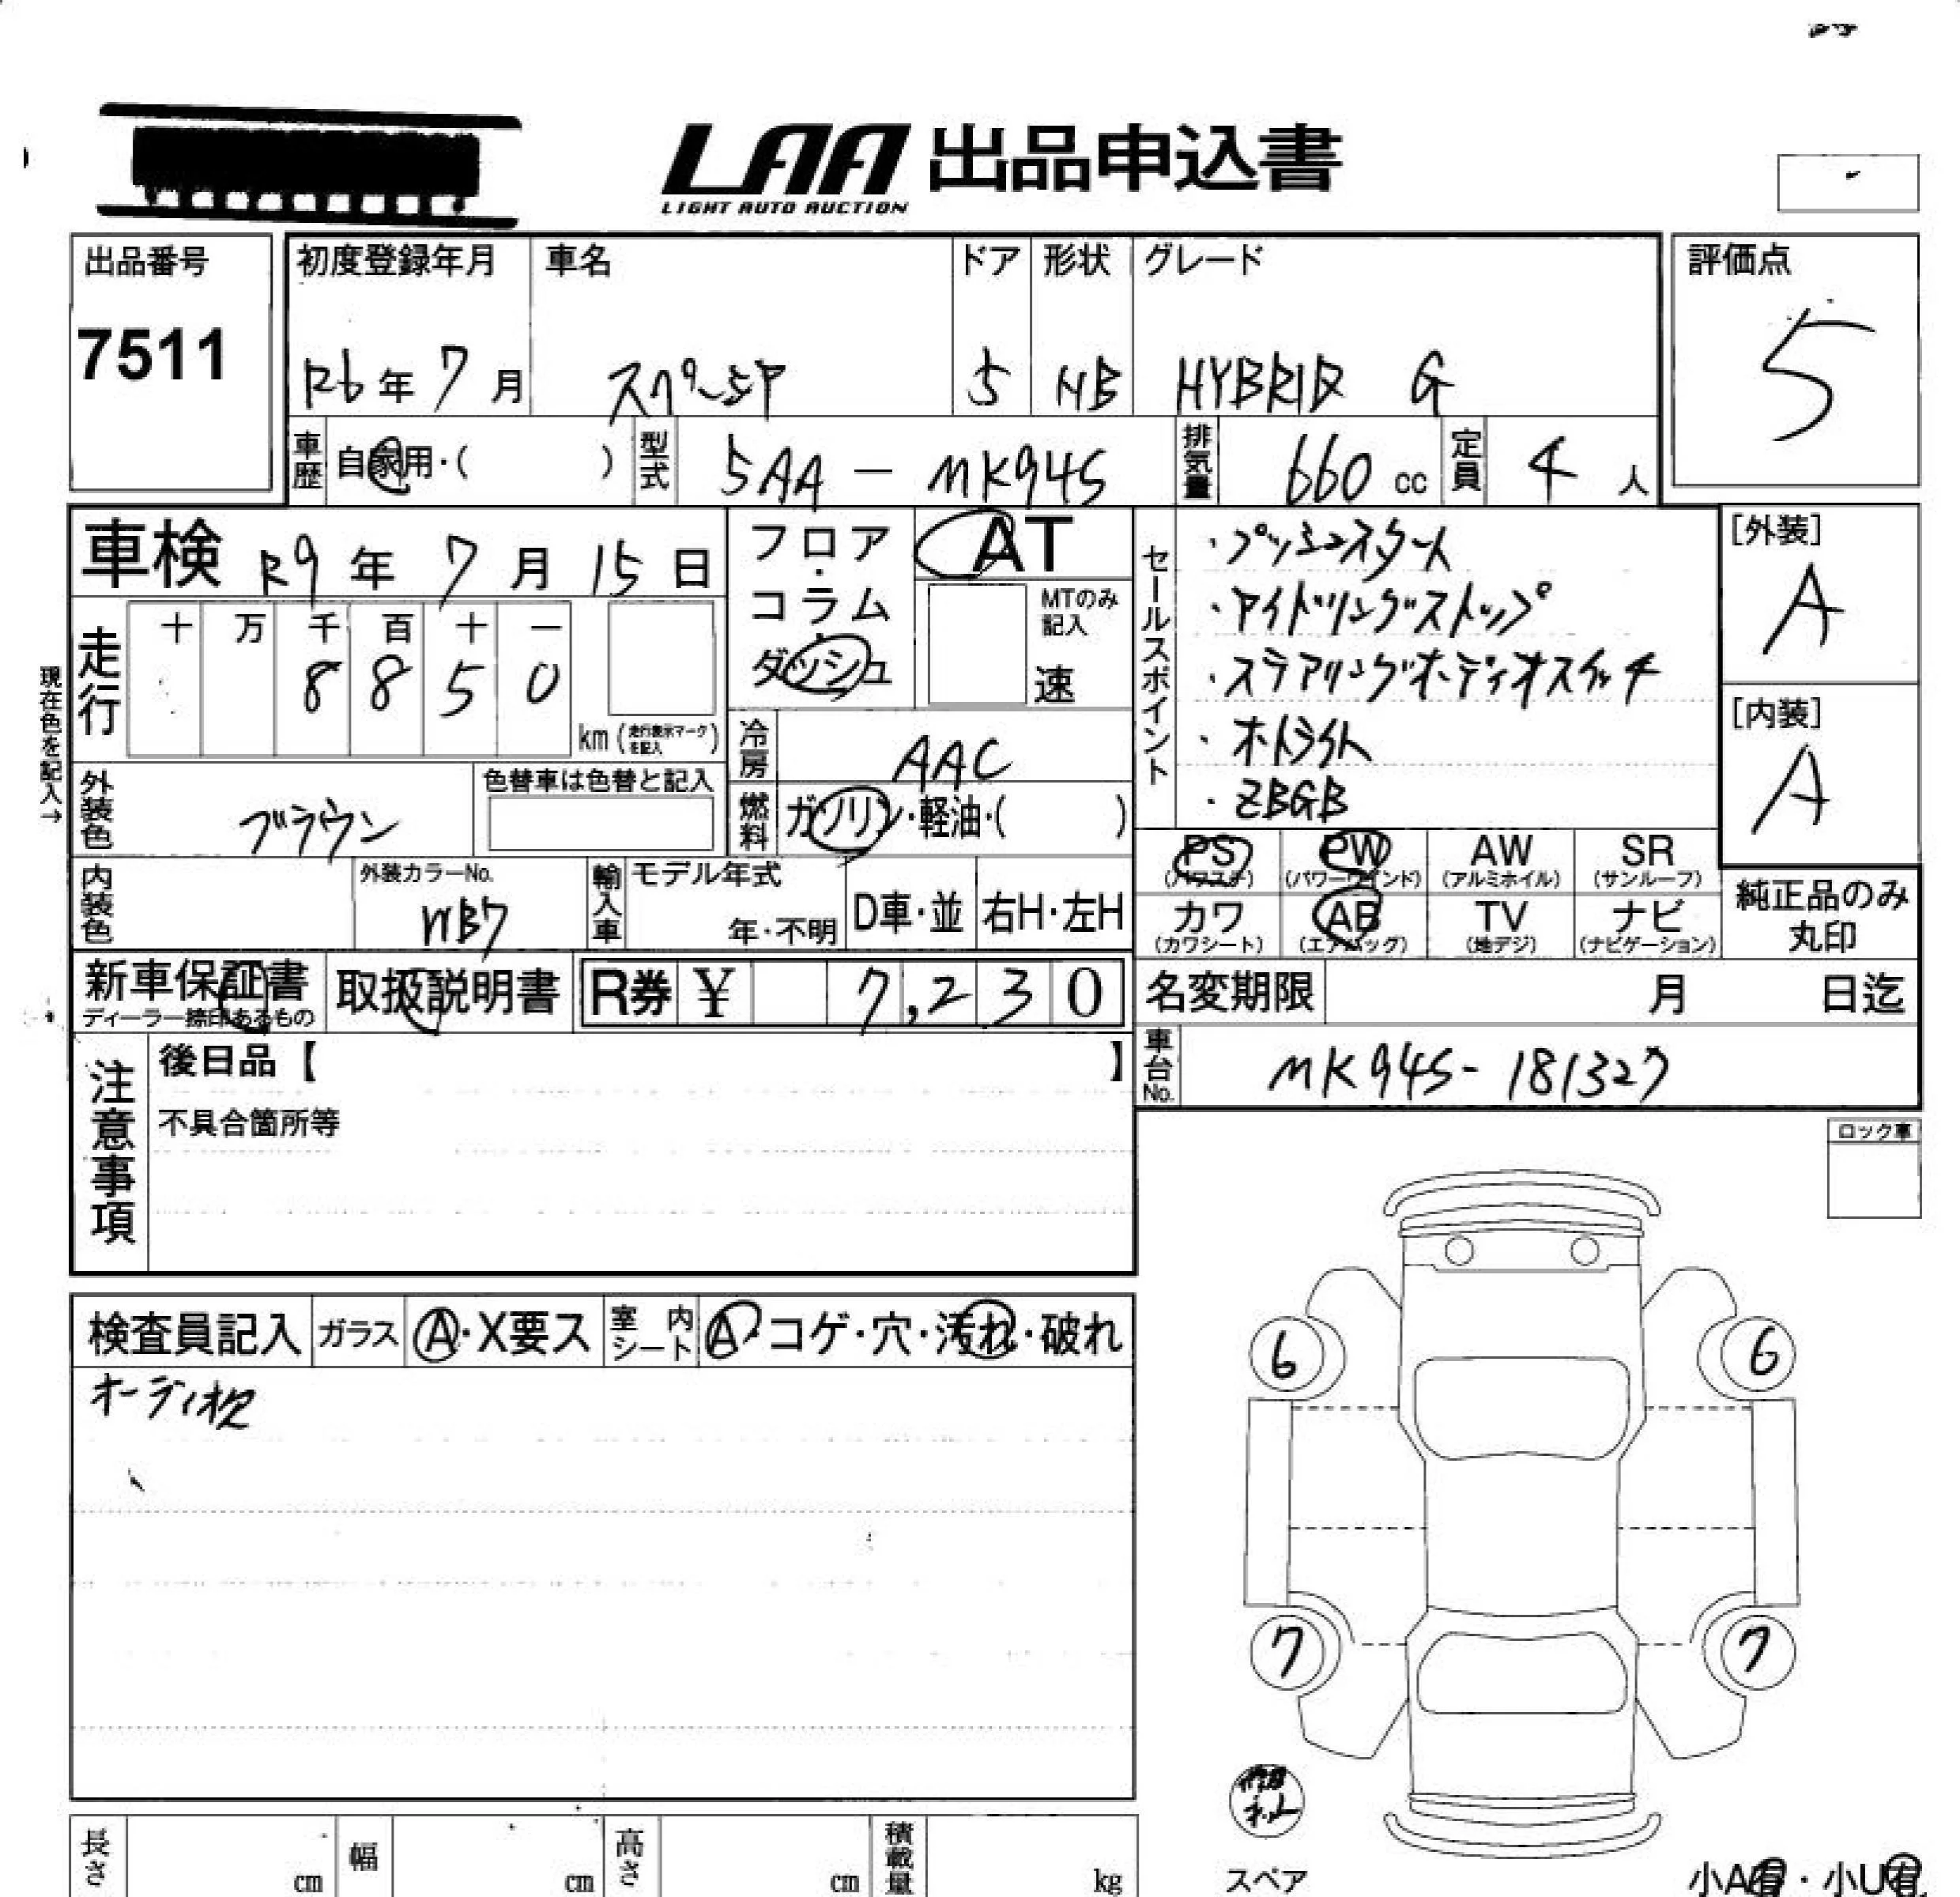 LAA 出品申込書
LIGHT AUTO AUCTION
出品番号
7511
初度登録年月
R6年7月
車名
スペーシア
ドア
5
形状
HB
グレード
HYBRID G
評価点
5
車歴
自家用・( )
型式
5AA-MK94S
排気量
660cc
定員
4人
車検 R9年7月15日
フロア・コラム・ダッシュ
AT
MTのみ記入
速
走行
十 万 千 百 十 一
8 8 5 0
km(走行表示マークを記入)
現在色を記入→
外装色
ブラウン
色替車は色替と記入
冷房
AAC
燃料
ガソリン・軽油・( )
セールスポイント
・プッシュスタート
・アイドリングストップ
・ステアリングオーディオスイッチ
・オートライト
・ZBGB
[外装]
A
[内装]
A
PS (パワステ)
PW (パワーウインド)
AW (アルミホイル)
SR (サンルーフ)
カワ (カワシート)
AB (エアバッグ)
TV (地デジ)
ナビ (ナビゲーション)
純正品のみ丸印
内装色
外装カラーNo.
WB7
輸入車
モデル年式
年・不明
D車・並
右H・左H
新車保証書
ディーラー捺印あるもの
取扱説明書
R券 ¥ 7,230
名変期限 月 日迄
車台No.
MK94S-181327
注意事項
後日品【 】
不具合箇所等
ロック車
検査員記入
ガラス
A・X要ス
室内シート
A・コゲ・穴・汚れ・破れ
オーディオ欠
6 6
7 7
スペア
小A有・小U有
長さ cm
幅 cm
高さ cm
積載量 kg